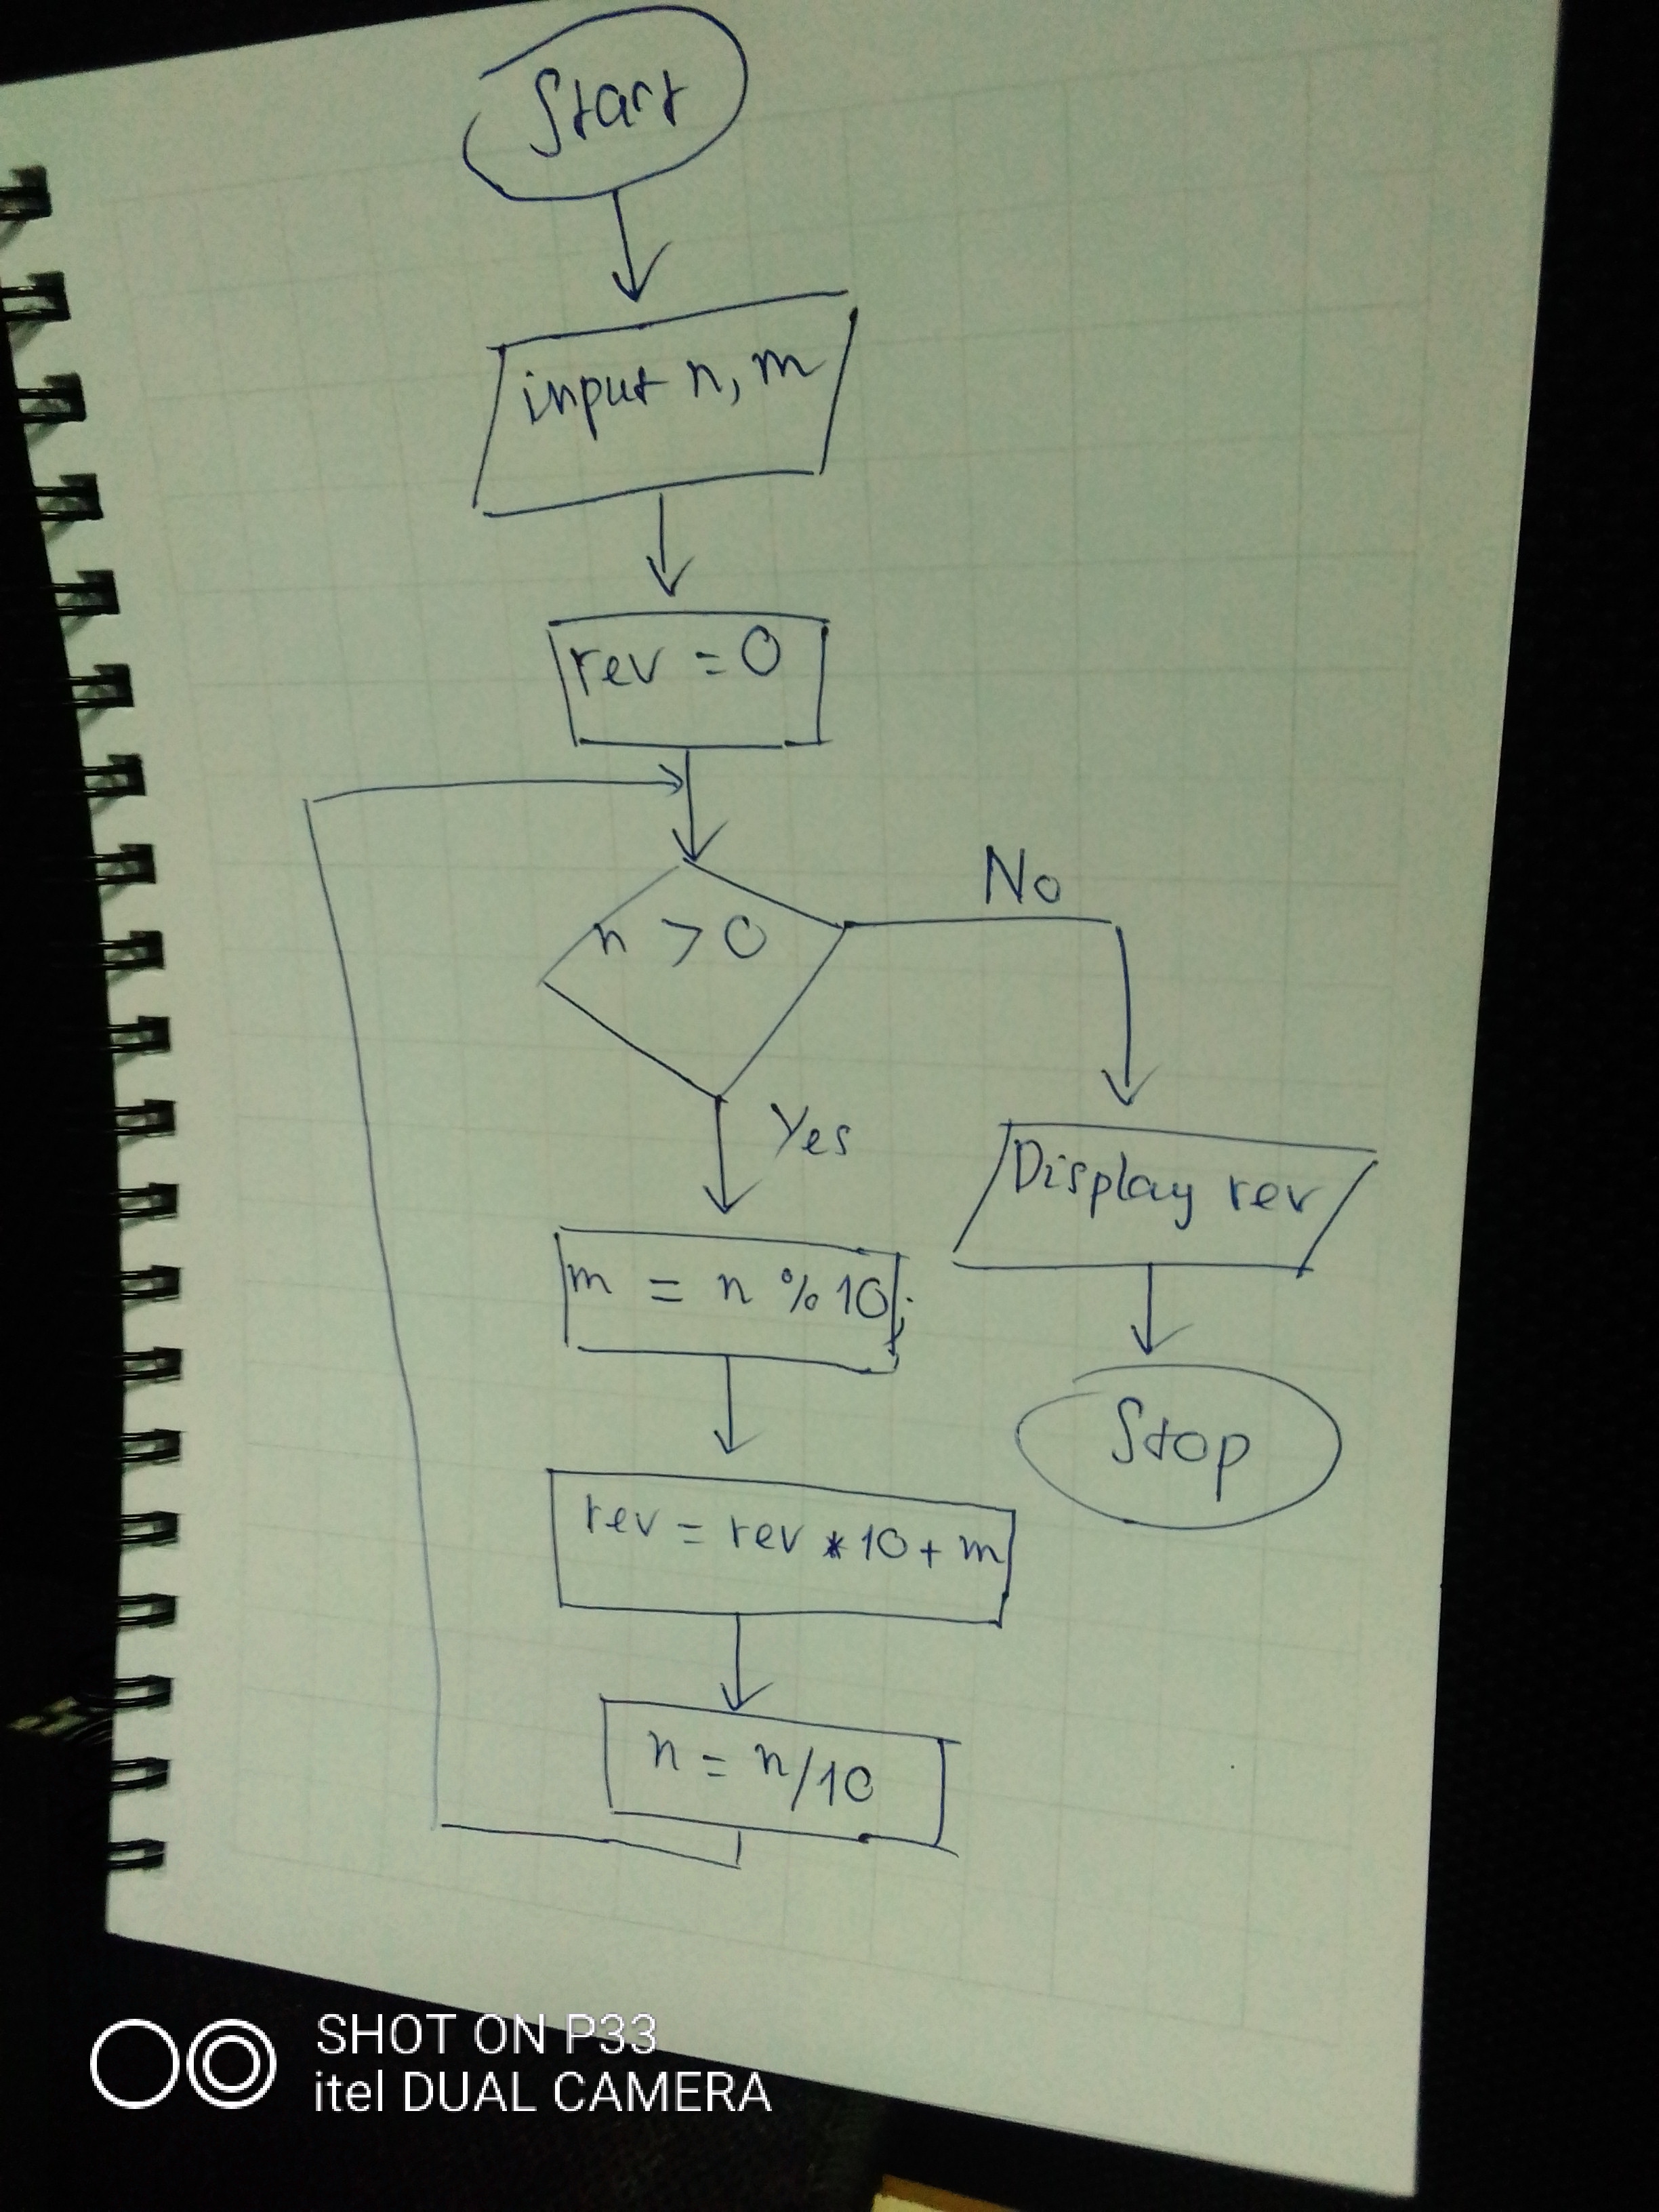 Start
input n, m
rev = 0
n > 0
No
Yes
Display rev
m = n % 10;
Stop
rev = rev * 10 + m
n = n/10
SHOT ON P33
itel DUAL CAMERA